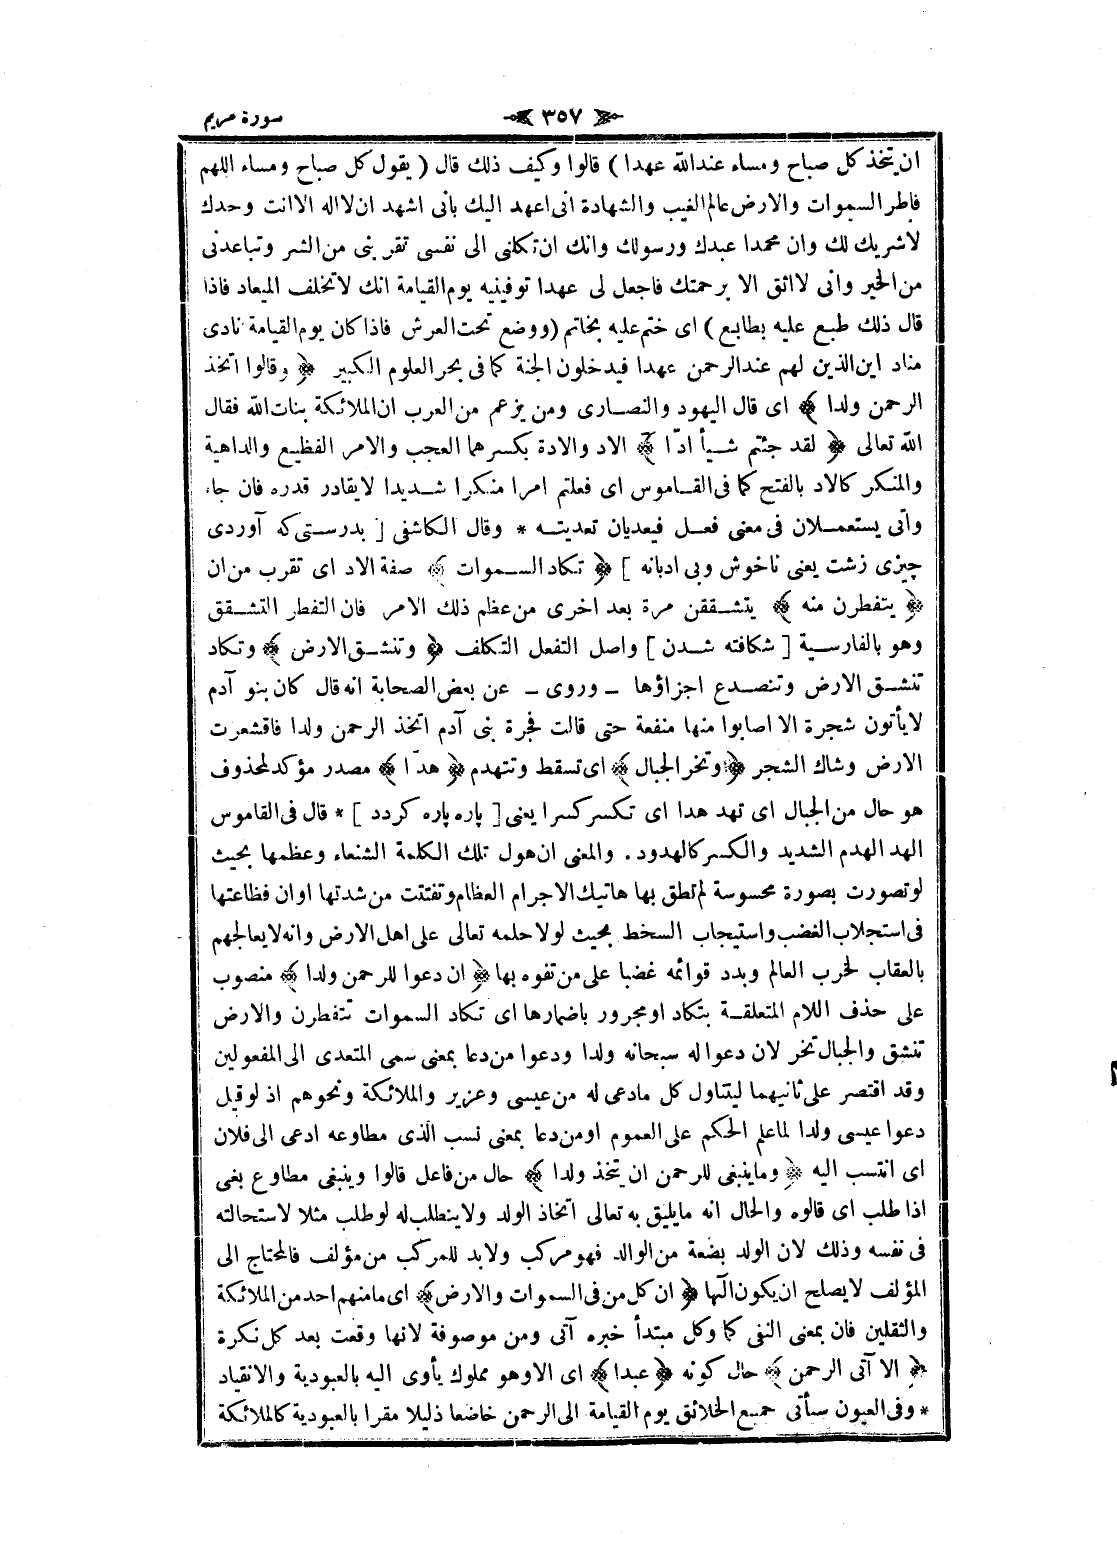 سورة مريم
٣٥٧
ان يتخذ كل صباح ومساء عندالله عهدا ) قالوا وكيف ذلك قال ( يقول كل صباح ومساء اللهم
فاطر السموات والارض عالم الغيب والشهادة انى اعهد اليك بانى اشهد ان لااله الاانت وحدك
لاشريك لك وان محمدا عبدك ورسولك وانك ان تكلنى الى نفسى تقربنى من الشر وتباعدنى
من الخير وانى لااثق الا برحمتك فاجعل لى عهدا توفينيه يوم القيامة انك لاتخلف الميعاد فاذا
قال ذلك طبع عليه بطابع ) اى ختم عليه بخاتم (ووضع تحت العرش فاذا كان يوم القيامة نادى
مناد اين الذين لهم عندالرحمن عهدا فيدخلون الجنة كما فى بحر العلوم الكبير ﴿ وقالوا اتخذ
الرحمن ولدا ﴾ اى قال اليهود والنصارى ومن يزعم من العرب ان الملائكة بنات الله فقال
الله تعالى ﴿ لقد جئتم شيأ ادّا ﴾ الاد والادة بكسرهما العجب والامر الفظيع والداهية
والمنكر كالاد بالفتح كما فى القاموس اى فعلتم امرا منكرا شديدا لايقادر قدره فان جاء
وأتى يستعملان فى معنى فعل فيعديان تعديته * وقال الكاشفى [ بدرستى كه آوردى
چيزى زشت يعنى ناخوش وبى ادبانه ] ﴿ تكاد السموات ﴾ صفة الاد اى تقرب من ان
﴿ يتفطرن منه ﴾ يتشققن مرة بعد اخرى من عظم ذلك الامر فان التفطر التشقق
وهو بالفارسية [ شكافته شدن ] واصل التفعل التكلف ﴿ وتنشق الارض ﴾ وتكاد
تنشق الارض وتنصدع اجزاؤها ـ وروى ـ عن بعض الصحابة انه قال كان بنو آدم
لايأتون شجرة الا اصابوا منها منفعة حتى قالت فجرة بنى آدم اتخذ الرحمن ولدا فاقشعرت
الارض وشاك الشجر ﴿ وتخر الجبال ﴾ اى تسقط وتتهدم ﴿ هدّا ﴾ مصدر مؤكد لمحذوف
هو حال من الجبال اى تهد هدا اى تكسر كسرا يعنى [ پاره پاره كردد ] * قال فى القاموس
الهد الهدم الشديد والكسر كالهدود . والمعنى ان هول تلك الكلمة الشنعاء وعظمها بحيث
لوتصورت بصورة محسوسة لم تطق بها هاتيك الاجرام العظام وتفتتت من شدتها اوان فظاعتها
فى استجلاب الغضب واستيجاب السخط بحيث لولا حلمه تعالى على اهل الارض وانه لايعالجهم
بالعقاب لخرب العالم وبدد قوائمه غضبا على من تفوه بها ﴿ ان دعوا للرحمن ولدا ﴾ منصوب
على حذف اللام المتعلقة بتكاد اومجرور باضمارها اى تكاد السموات تتفطرن والارض
تنشق والجبال تخر لان دعوا له سبحانه ولدا ودعوا من دعا بمعنى سمى المتعدى الى المفعولين
وقد اقتصر على ثانيهما ليتناول كل مادعى له من عيسى وعزير والملائكة ونحوهم اذ لوقيل
دعوا عيسى ولدا لماعلم الحكم على العموم اومن دعا بمعنى نسب الذى مطاوعه ادعى الى فلان
اى انتسب اليه ﴿ وماينبغى للرحمن ان يتخذ ولدا ﴾ حال من فاعل قالوا وينبغى مطاوع بغى
اذا طلب اى قالوه والحال انه مايليق به تعالى اتخاذ الولد ولاينطلب له لوطلب مثلا لاستحالته
فى نفسه وذلك لان الولد بضعة من الوالد فهو مركب ولابد للمركب من مؤلف فالمحتاج الى
المؤلف لايصلح ان يكون الٓها ﴿ ان كل من فى السموات والارض ﴾ اى مامنهم احد من الملائكة
والثقلين فان بمعنى النفى كما وكل مبتدأ خبره آتى ومن موصوفة لانها وقعت بعد كل نكرة
﴿ الا آتى الرحمن ﴾ حال كونه ﴿ عبدا ﴾ اى الاوهو مملوك يأوى اليه بالعبودية والانقياد
* وفى العيون سيأتى جميع الخلائق يوم القيامة الى الرحمن خاضعا ذليلا مقرا بالعبودية كالملائكة